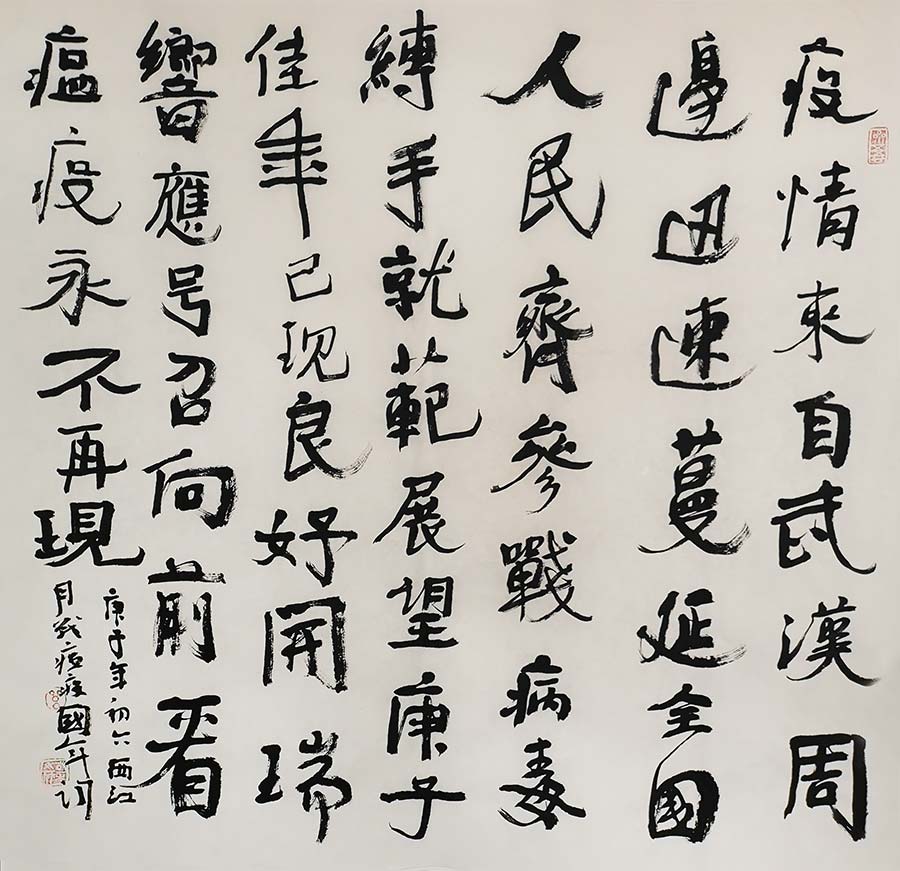 疫情来自武漢周
邊迅速蔓延全國
人民齊參戰病毒
縛手就範展望庚子
佳年已现良好開瑞
響應号召向前看
瘟疫永不再現
庚子年初六西江
月戰瘟疫國年詞